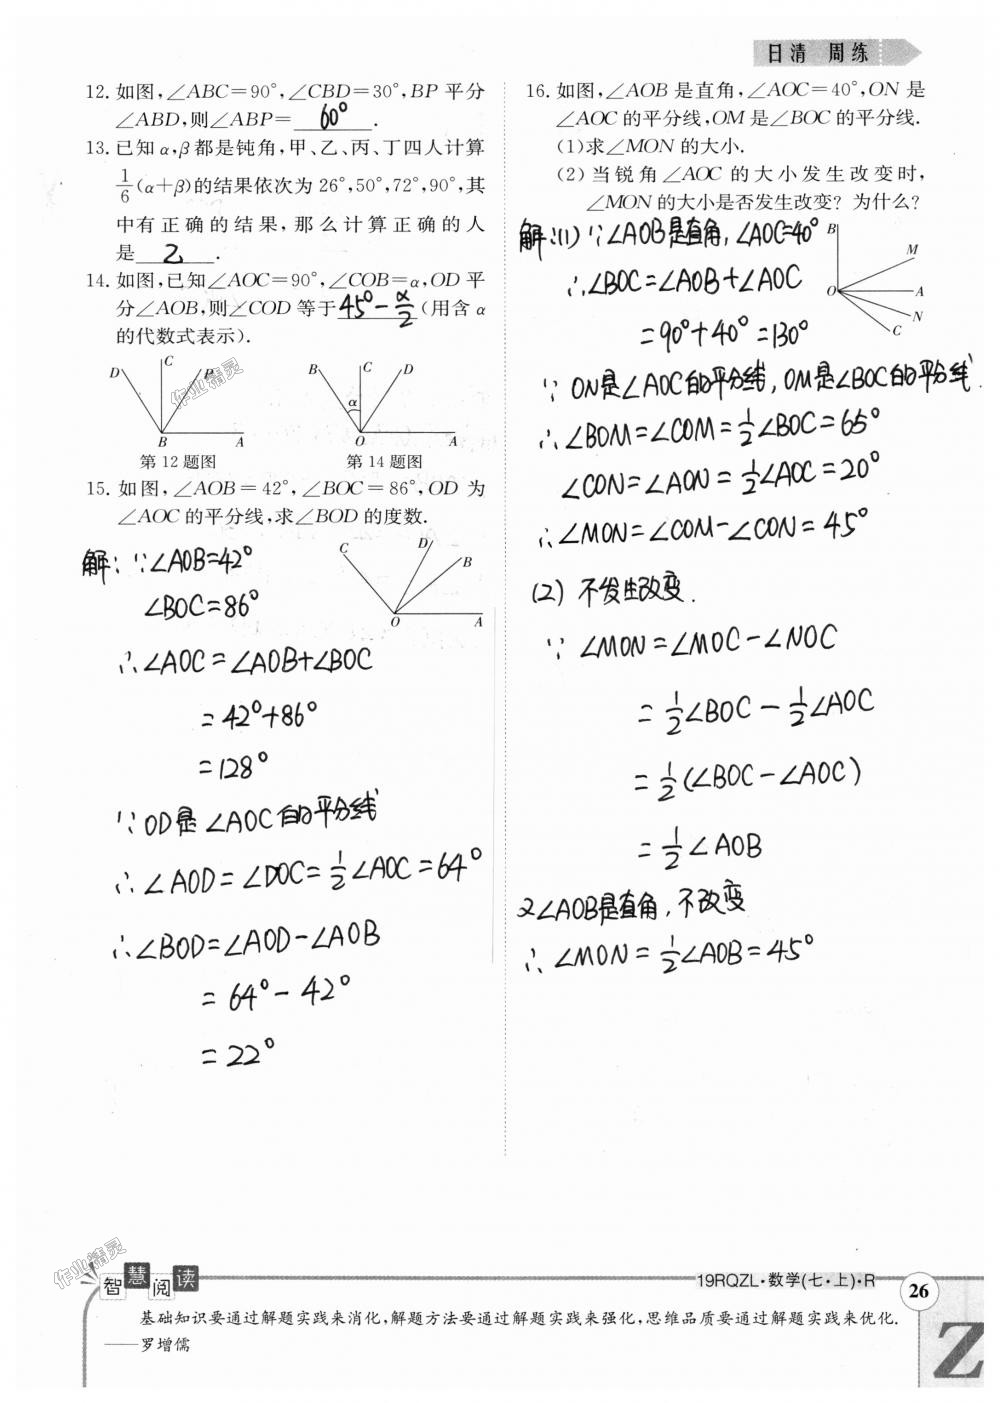 日清 周练
12. 如图,∠ABC=90°,∠CBD=30°,BP 平分
∠ABD,则∠ABP= 60° .
13. 已知 α,β 都是钝角,甲、乙、丙、丁四人计算
1/6(α+β)的结果依次为 26°,50°,72°,90°,其
中有正确的结果,那么计算正确的人
是 乙 .
14. 如图,已知∠AOC=90°,∠COB=α,OD 平
分∠AOB,则∠COD 等于 45°-α/2 (用含 α
的代数式表示).
D C P
B A
第 12 题图
B C D
α
O A
第 14 题图
15. 如图,∠AOB=42°,∠BOC=86°,OD 为
∠AOC 的平分线,求∠BOD 的度数.
C D B
O A
解:∵∠AOB=42°
∠BOC=86°
∴∠AOC=∠AOB+∠BOC
=42°+86°
=128°
∵OD是∠AOC的平分线
∴∠AOD=∠DOC=1/2∠AOC=64°
∴∠BOD=∠AOD-∠AOB
=64°-42°
=22°
16. 如图,∠AOB 是直角,∠AOC=40°,ON 是
∠AOC 的平分线,OM 是∠BOC 的平分线.
(1)求∠MON 的大小.
(2)当锐角∠AOC 的大小发生改变时,
∠MON 的大小是否发生改变? 为什么?
B
M
O A
N
C
解:(1)∵∠AOB是直角,∠AOC=40°
∴∠BOC=∠AOB+∠AOC
=90°+40°=130°
∵ON是∠AOC的平分线,OM是∠BOC的平分线.
∴∠BOM=∠COM=1/2∠BOC=65°
∠CON=∠AON=1/2∠AOC=20°
∴∠MON=∠COM-∠CON=45°
(2) 不发生改变.
∵∠MON=∠MOC-∠NOC
=1/2∠BOC-1/2∠AOC
=1/2(∠BOC-∠AOC)
=1/2∠AOB
又∠AOB是直角,不改变
∴∠MON=1/2∠AOB=45°
作业精灵
作业精灵
智慧阅读
19RQZL·数学(七·上)·R
26
基础知识要通过解题实践来消化,解题方法要通过解题实践来强化,思维品质要通过解题实践来优化.
——罗增儒
Z